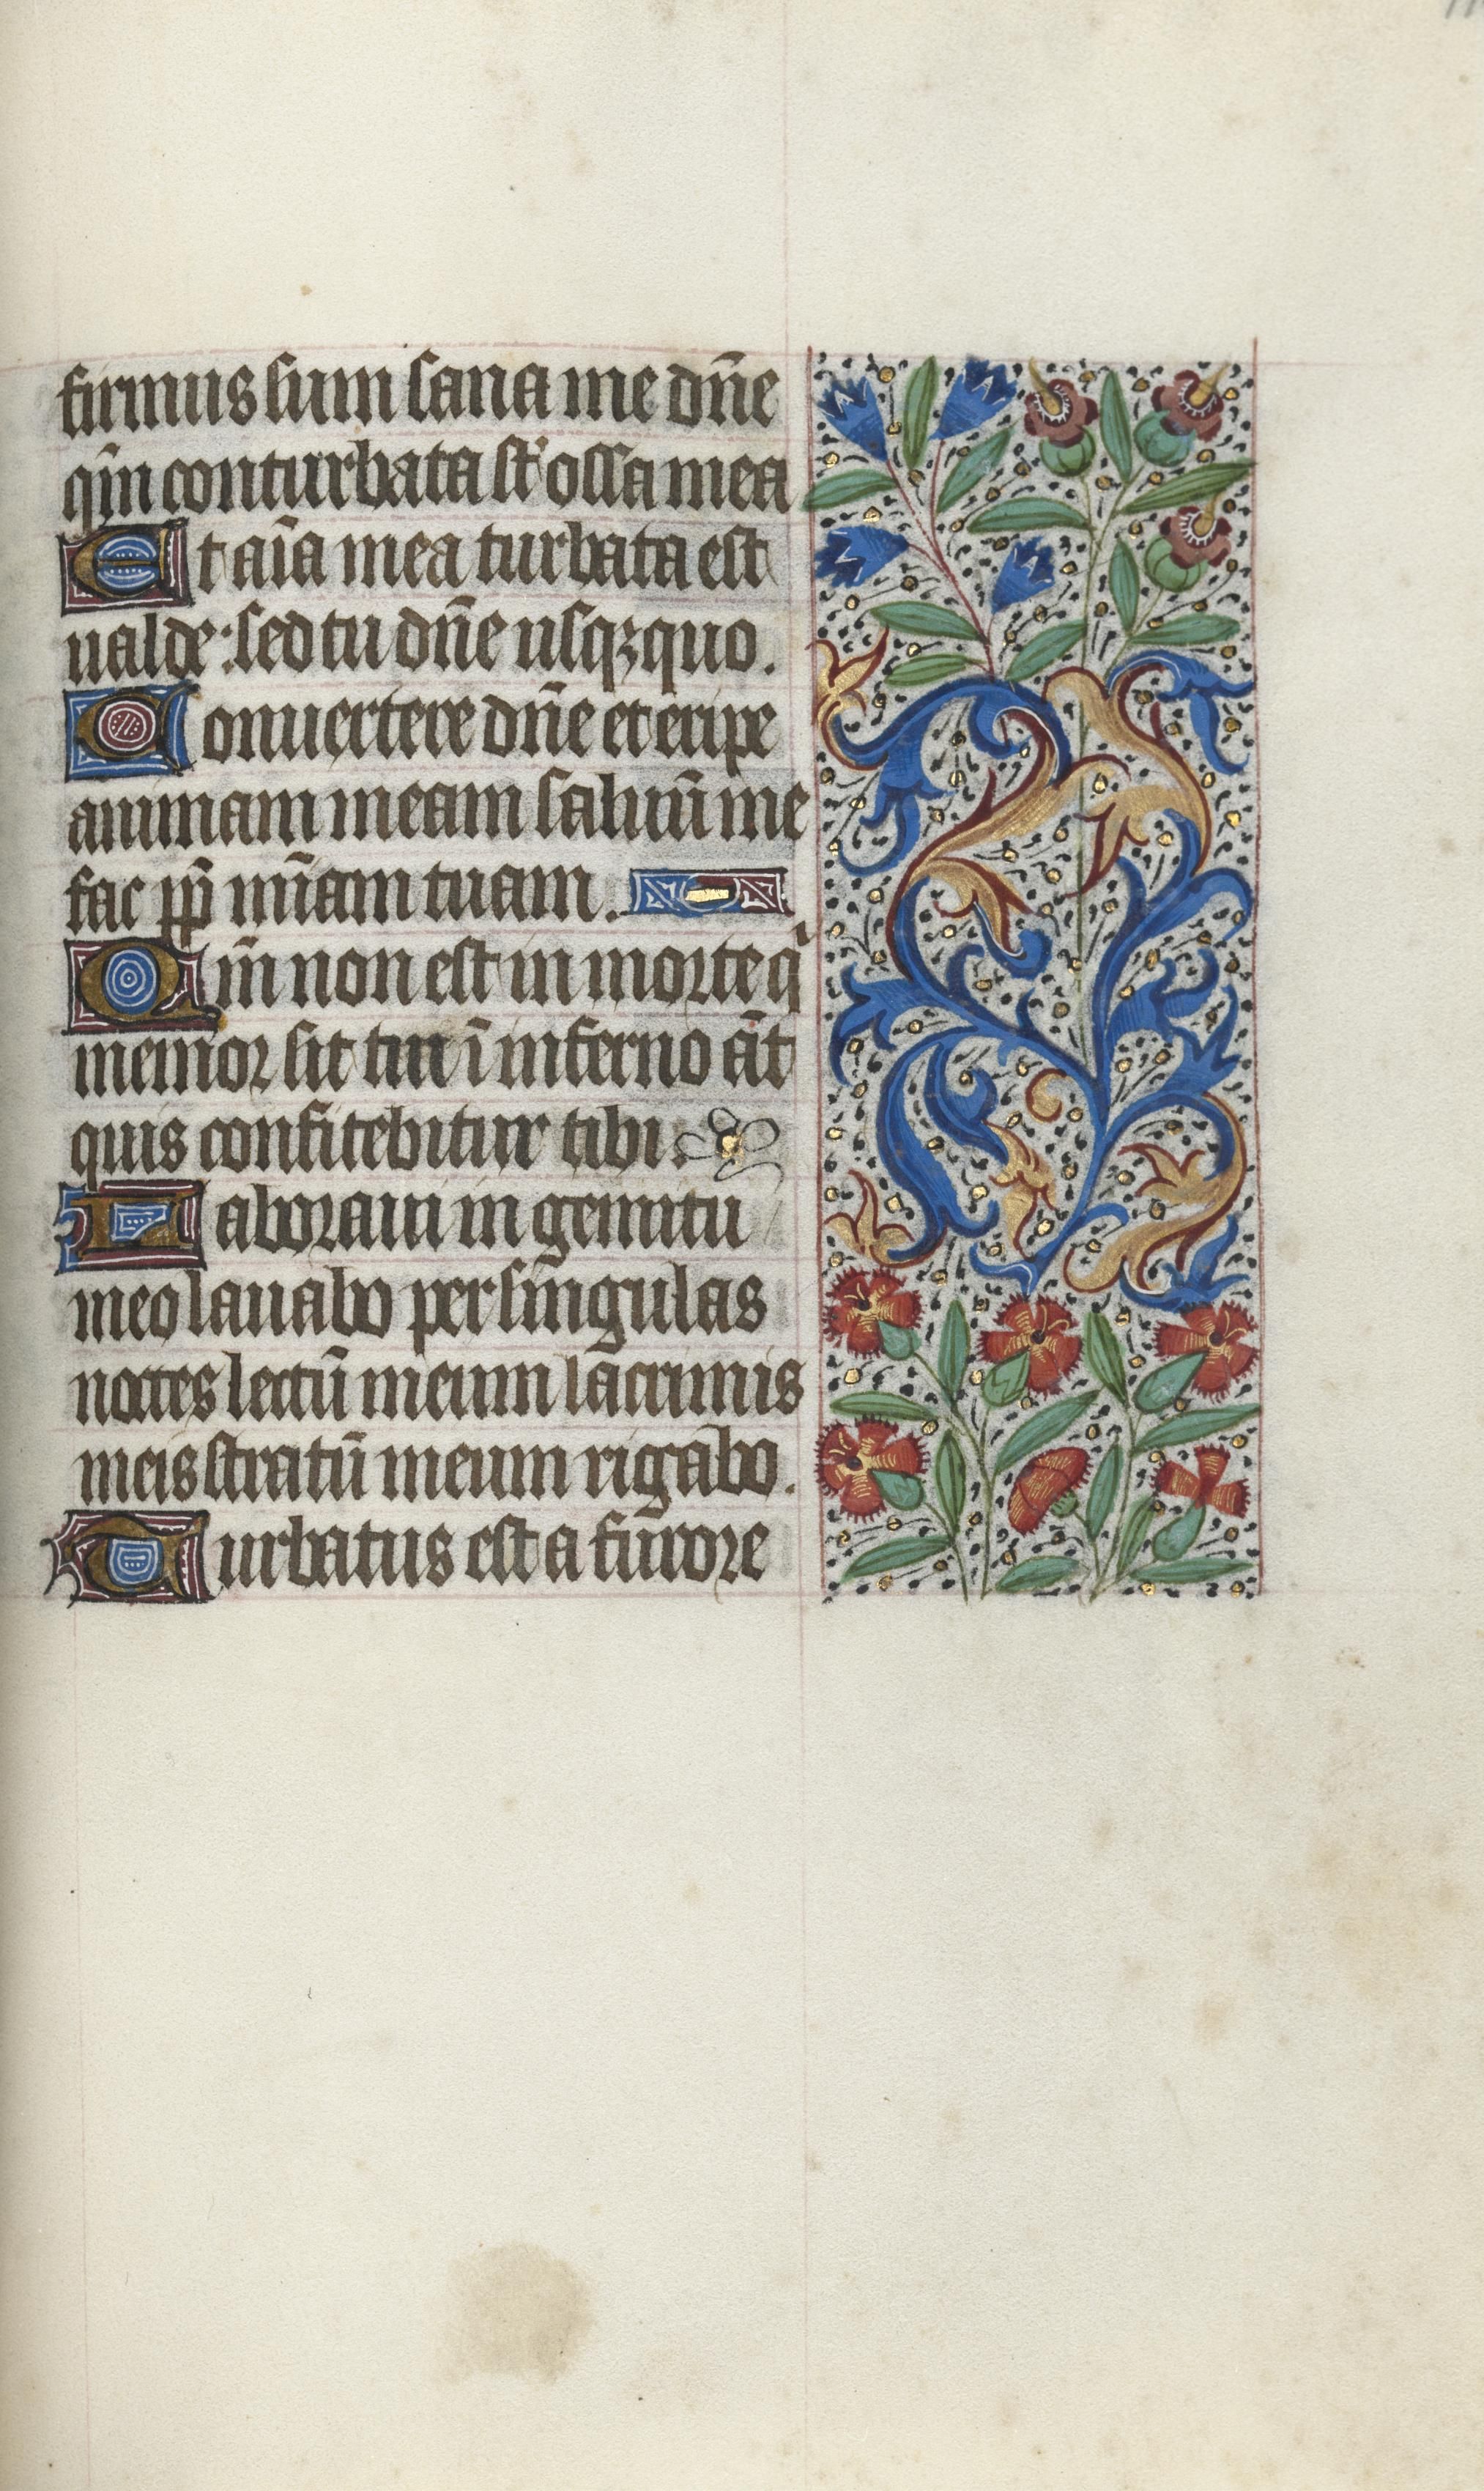 firmus sum sana me dn̄e
qm̄ conturbata st' ossa mea
Et aīa mea turbata est
ualde: sed tu dn̄e usqꝫquo.
Conuertere dn̄e et eripe
animam meam saluū me
fac pp̄ mīam tuam.
Qm̄ non est in morte qͥ
memor sit tui ī inferno āt
quis confitebitur tibi.
Laboraui in gemitu
meo lauabo per singulas
noctes lectū meum lacrimis
meis stratū meum rigabo.
Turbatus est a furore